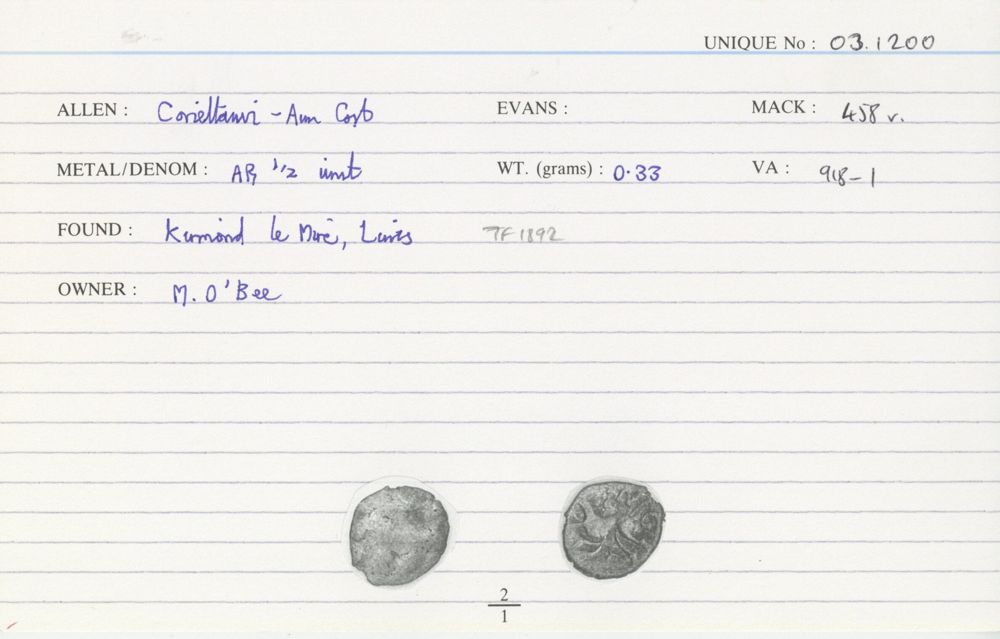 UNIQUE No : 03.1200
ALLEN : Corieltauvi - Aun Cost EVANS : MACK : 458 v.
METAL/DENOM : AR 1/2 unit WT. (grams) : 0.33 VA : 918-1
FOUND : Kirmond le Mire, Lincs TF 1892
OWNER : M. O'Bee
2
1